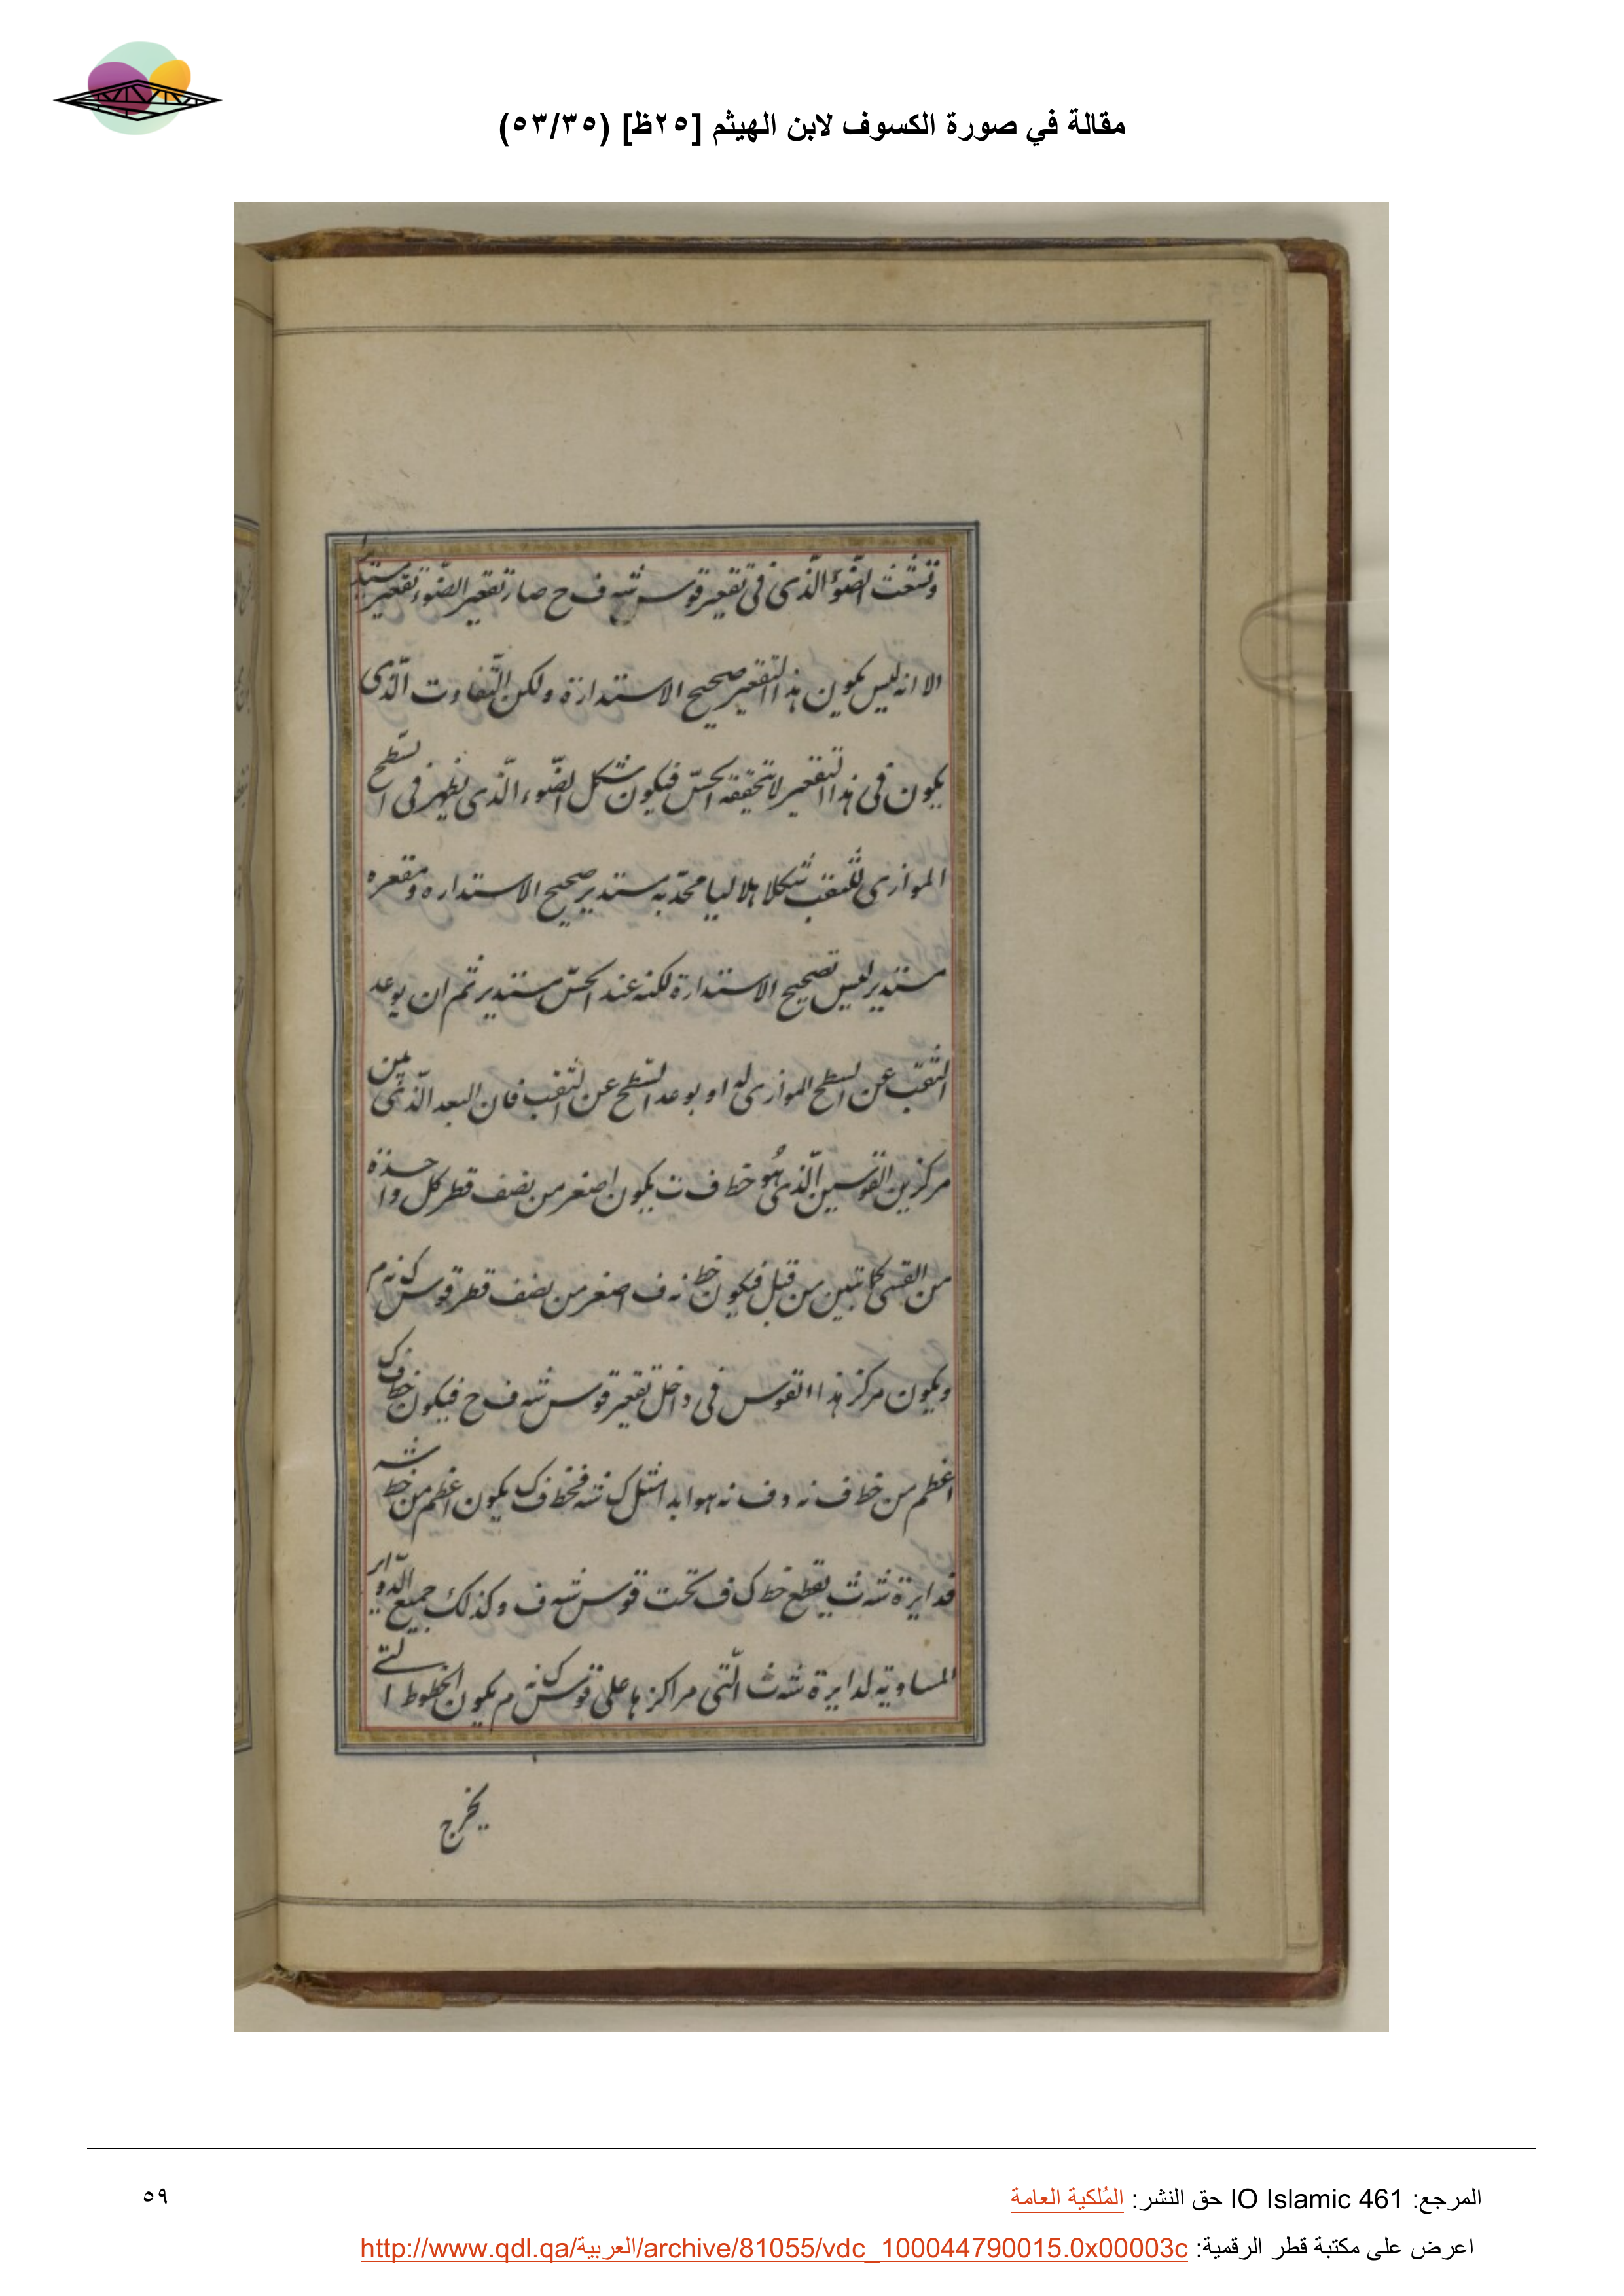 مقالة في صورة الكسوف لابن الهيثم [٢٥ظ] (٥٣/٣٥)
وتشعّث الضّوء الّذى فى تقعير قوس شه ف ح صار تقعير الضّوء تقعير مستديرا
الا انه ليس يكون هذا التقعير صحيح الاستدارة ولكن التّفاوت الّذى
يكون فى هذا التقعير لا يتحققه الحسّ فيكون شكل الضّوء الّذى يظهر فى السّطح
الموازى للثقب شكلا هلاليا محدّبه مستدير صحيح الاستداره ومقعره
مستدير ليس بصحيح الاستدارة لكنه عند الحسّ مستدير ثم ان بوعد
الثقب عن السّطح الموازى له او بوعد السّطح عن الثقب فان البعد الّذى بين
مركزين القوسين الّذى هُو خط ف ت يكون اصغر من نصف قطر كل واحدة
من القسى كما تبين من قبل فيكون خط نه ف اصغر من نصف قطر قوس ك نه م
ويكون مركز هذا القوس فى داخل تقعير قوس شه ف ح فيكون خط ف ك
اعظم من خط ف نه و ف نه هو ابدا مثل ك شه فخط ف ك يكون اعظم من خط شه
فدايرة شه ث يقطع خط ك ف تحت قوس شه ف وكذلك جميع الدّواير
المساوية لدايرة شه ث الّتى مراكزها على قوس ك نه م يكون الخطوط التى
يخرج
المرجع: IO Islamic 461 حق النشر: المُلكية العامة
٥٩
اعرض على مكتبة قطر الرقمية: http://www.qdl.qa/العربية/archive/81055/vdc_100044790015.0x00003c